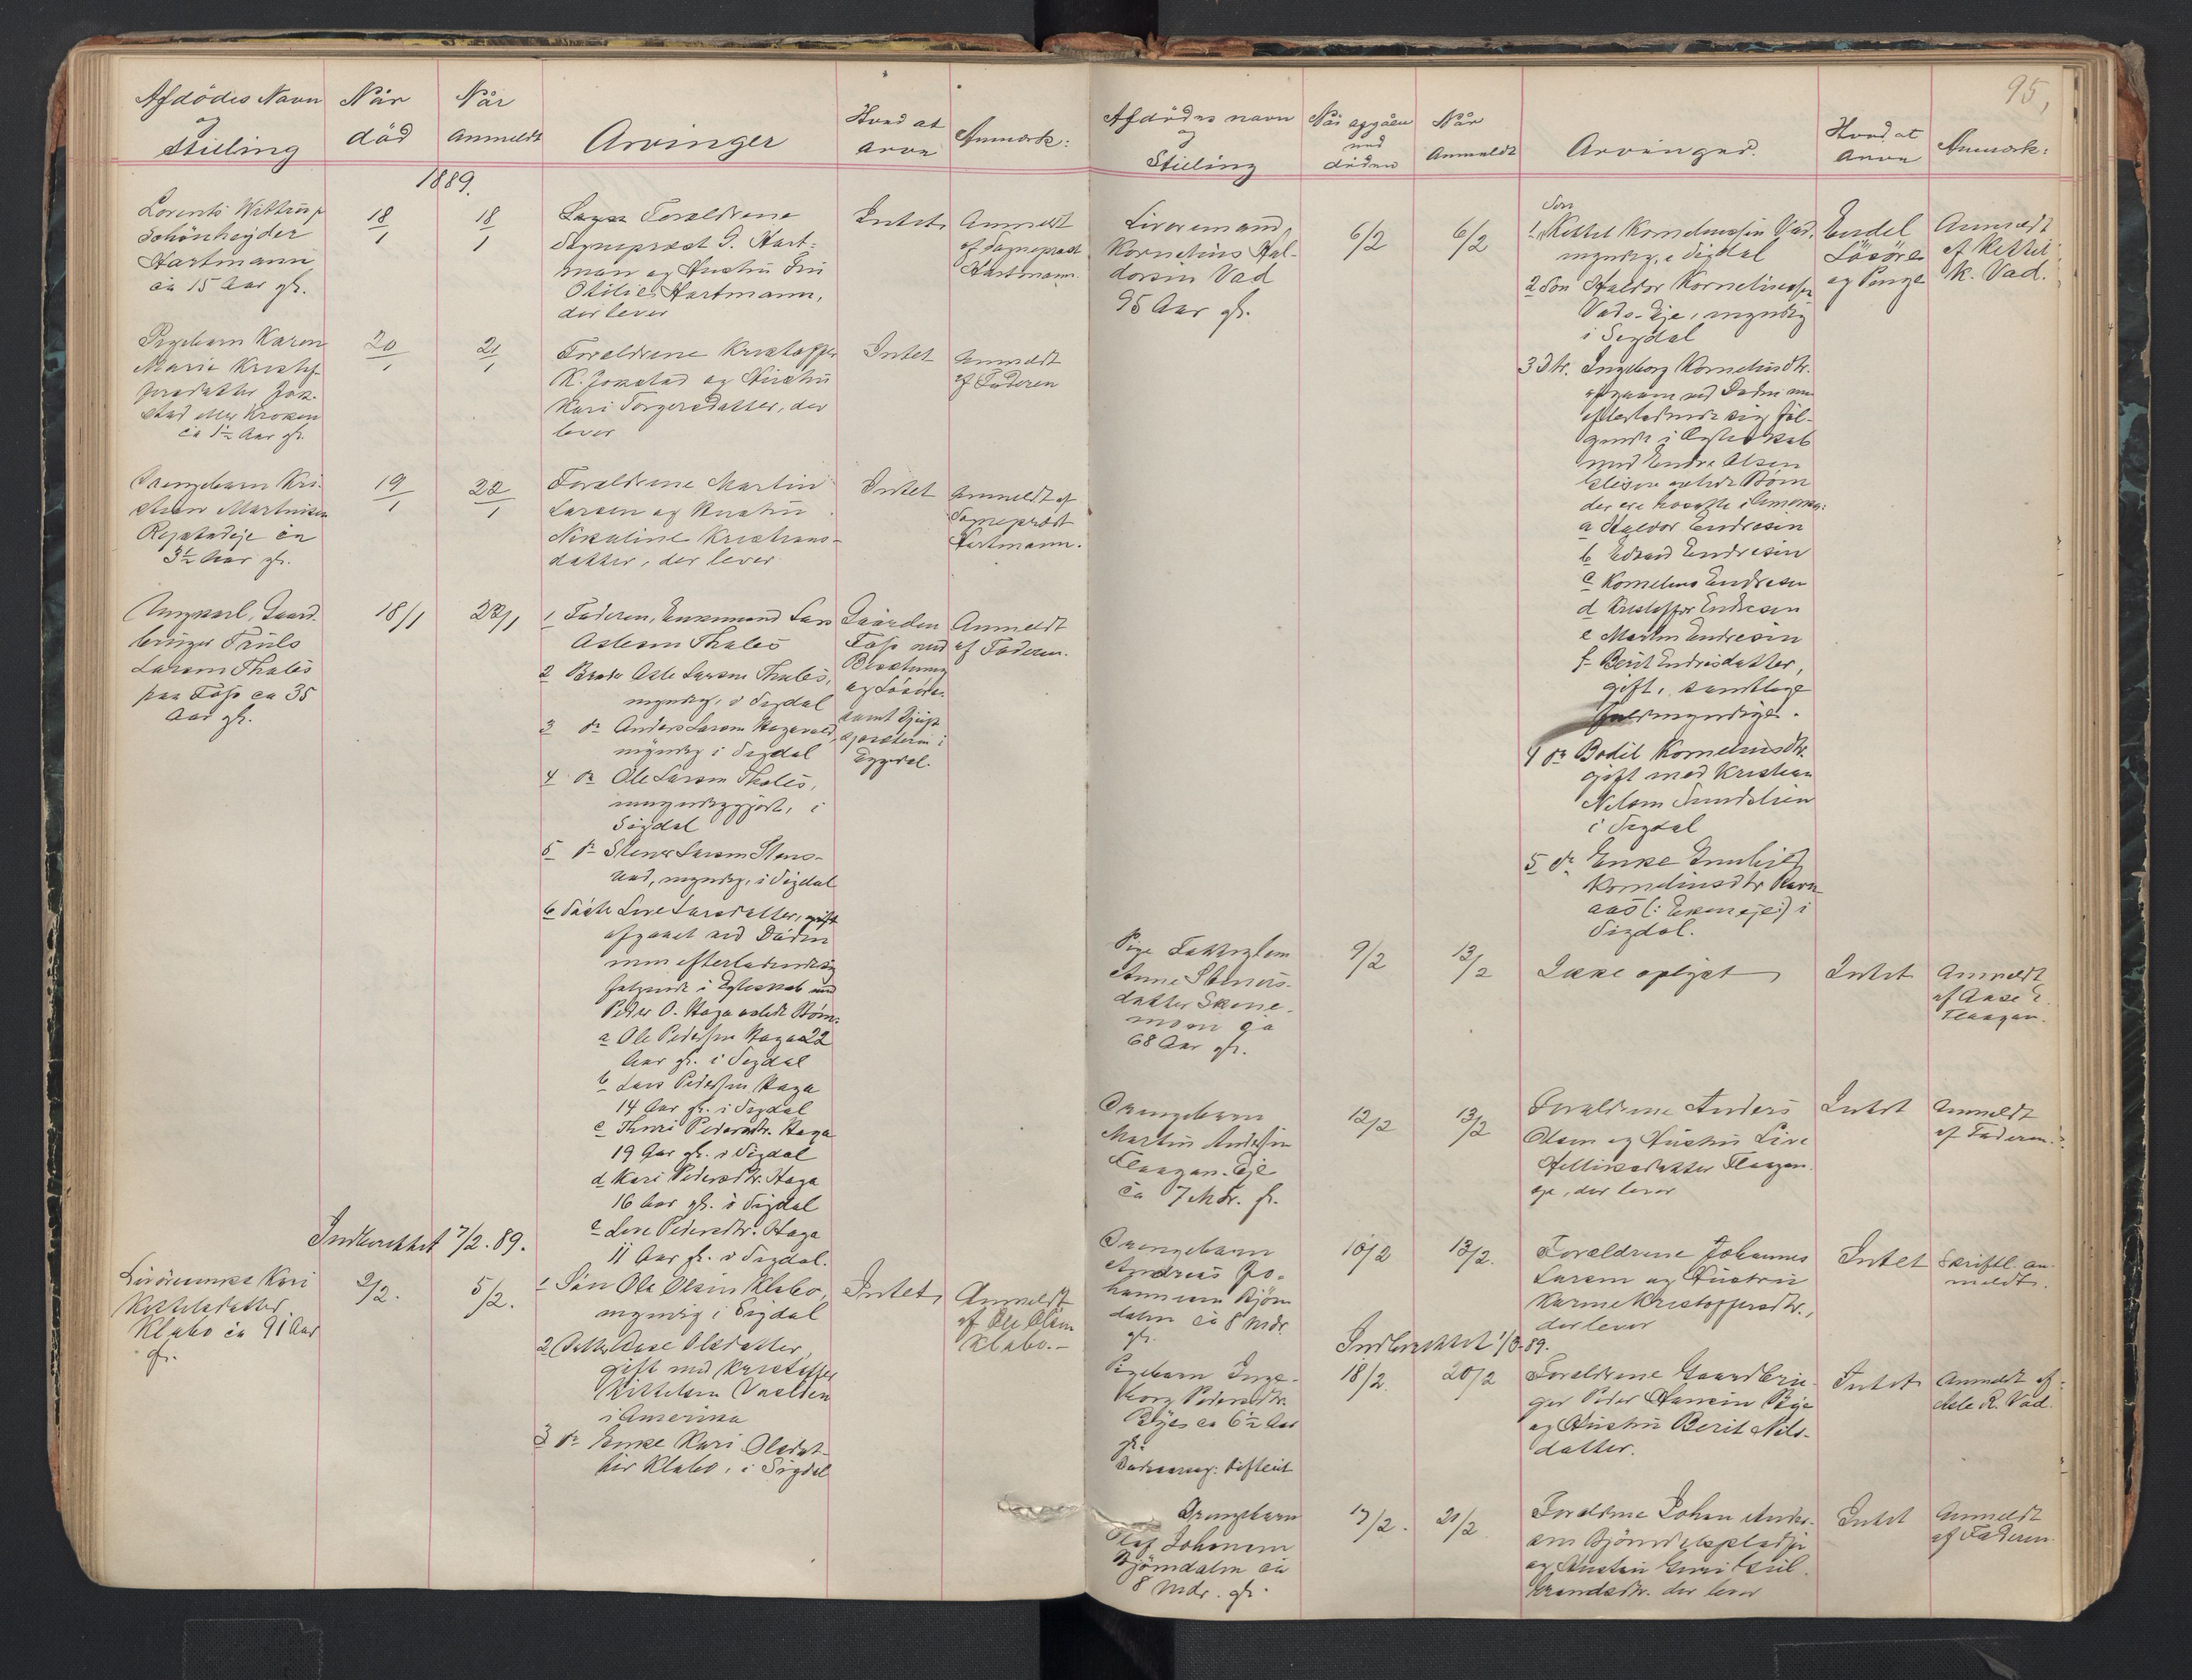 Afdødes Navn
og
Stilling
Når
død
Når
Anmeldt
Arvinger
Hvad at
arve
Anmærk:
1889.
Lorents Wittrup
Schönheyder
Hartmann
ca 15 Aar gl.
18/1
18/1
Forældrene
Sogneprest G. Hart-
man og Hustru
Otilie Hartmann,
der lever
Intet
Anmeldt
af Sogneprest
Hartmann.
Pigebarn Karen
Marie Kristof-
fersdatter Jok-
stad eller Kroken
ca 1½ Aar gl.
20/1
21/1
Forældrene Kristoffer
K. Jokstad og Hustru
Kari Torgersdatter, der
lever
Intet
Anmeldt
af Faderen
Drengebarn Kri-
stian Martinsen
ca
3½ Aar gl.
19/1
22/1
Forældrene Martin
Larsen og Hustru
Nikoline Kristians-
datter, der lever
Intet
Anmeldt af
Sogneprest
Hartmann.
Ungkarl, Gaard-
bruger Truls
Larsen Thales
paa Foss ca 35
Aar gl.
18/1
22/1
1 Faderen, Enkemand Lars
Aslesen Thales
2 Broder Asle Larsen Thales,
myndig, i Sigdal
3 do Anders Larsen
myndig i Sigdal
4 do Ole Larsen Thales,
i
Sigdal
5 do Stener Larsen Stens-
rud, myndig, i Sigdal
6 Søster Live Larsdatter, gift
afgaaet ved Døden
men efterladende sig
følgende i Egteskab med
Peder O. Haga avlede Børn:
a Ole Pedersen Haga 22
Aar gl. i Sigdal
b Lars Pedersen Haga
14 Aar gl. i Sigdal
c Thuri Pedersdtr. Haga
19 Aar gl. i Sigdal
d Kari Pedersdtr. Haga
16 Aar gl. i Sigdal
e Live Pedersdtr. Haga
11 Aar gl. i Sigdal.
Gaarden
Foss med
Besætning
og Løsøre
samt
i
Eggedal.
Anmeldt
af Faderen.
Indberettet 7/2. 89.
Kari
Kittelsdatter
Klabo ca 91 Aar
gl.
2/2.
5/2.
1 Søn Ole Olsen Klabo,
myndig i Sigdal
2 Datter Aase Olsdatter,
gift med Kristoffer
Kittelsen
i Amerika
3 do Enke Kari Olsdat-
ter Klabo, i Sigdal
Intet
Anmeldt
af Ole Olsen
Klabo.-
95,
Afdødes navn
og
Stilling
Når afgåen
ved
døden
Når
Anmeldt
Arvinger.
Hvad at
Arve
Anmærk:
Kornelius Hal-
dorsen Vad
95 Aar gl.
6/2
6/2
Søn
1 Kittel Korneliussen Vad,
myndig, i Sigdal
2 Søn Haldor Korneliussen
Vads-Eje, myndig
i Sigdal
3 Dtr. Ingeborg Korneliusdtr.
afgaaen ved Døden men
efterladende sig føl-
gende i Egteskab
med Endre Olsen
avlede Børn
der ere bosatte i Amerika:
a Haldor Endresen
b Edvard Endresen
c Kornelius Endresen
d Kristoffer Endresen
e Martin Endresen
f Berit Endresdatter,
gift, samtlige
fuldmyndige.
4 do Bodil Korneliusdtr.
gift med Kristian
Nelsen
i Sigdal
5 do Enke Gunhild
Korneliusdtr Ravn-
aas (: Ekerneje:) i
Sigdal.
Endel
Løsøre
og Penge
Anmeldt
af Kittel
K. Vad.
Pige Fattiglem
Anne Steners-
datter
ca
68 Aar gl.
9/2
13/2
Ikke oplyst
Intet
Anmeldt
af Aase
Flaagan.
Drengebarn
Martin Andersen
Flaagan-Eje
ca 7 Mdr. gl.
12/2
13/2
Forældrene Anders
Olsen og Hustru Live
Flaagan-
eje, der lever
Intet
Anmeldt
af Faderen.
Drengebarn
Andreas Jo-
hannesen Bjørn-
dalen ca 8 Mdr
gl.
10/2
13/2.
Forældrene Johannes
Larsen og Hustru
Karine Kristoffersdtr.,
der lever
Intet
Skriftl. an-
meldt.
Indberettet 1/3-89.
Pigebarn Inge-
borg Pedersdtr.
ca 6½ Aar
gl.
Dødsaarsag: Difterit
18/2.
20/2
Forældrene Gaardbru-
ger Peder Hansen
og Hustru Berit Nils-
datter.
Intet
Anmeldt af
Asle R. Vad.
Drengebarn
Olaf Johansen
Bjørndalen ca
8 Mdr. gl.
17/2.
21/2
Forældrene Johan Ander-
sen
og Hustru Guri
der lever
Intet
Anmeldt
af Faderen.